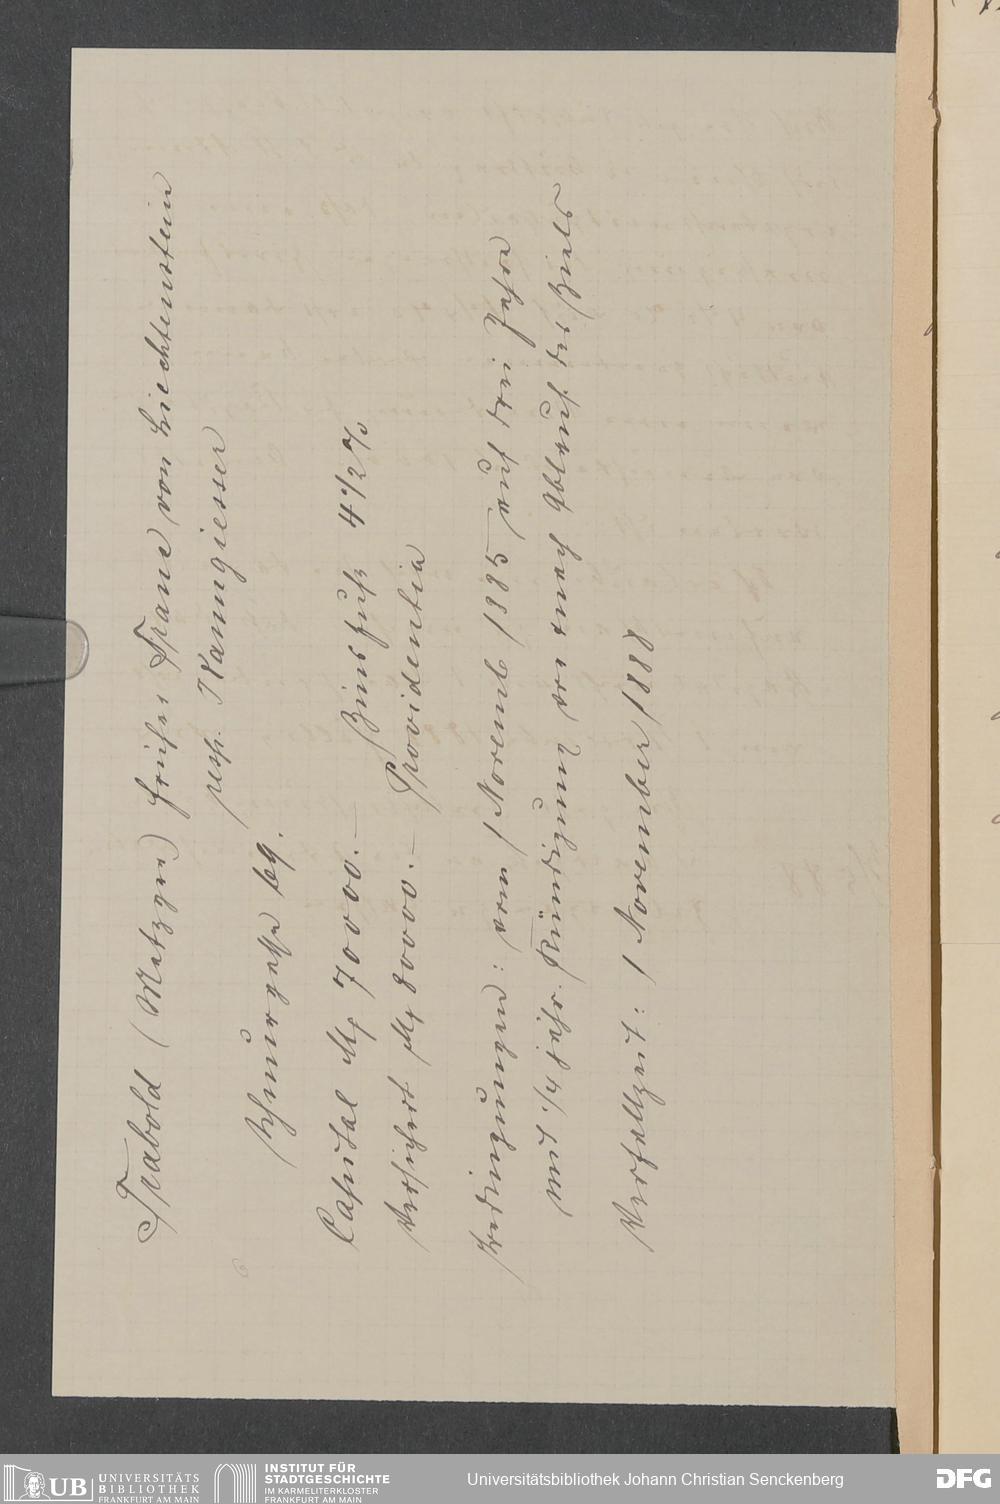 Trabold (Metzger) früher Franc von Liechtenstein
resp. Kanngiesser
Schnurgasse 69.
Capital M 70000.— Zinsfuß 4 1/2 %
Versichert M 80000.— Providentia
Bedingungen: vom 1 Novemb 1885 auf drei Jahre
mit 1/4 jähr. Kündigung vor & nach Ablauf des Ziels
Verfallzeit: 1 November 1888
UB UNIVERSITÄTS
BIBLIOTHEK
FRANKFURT AM MAIN
INSTITUT FÜR
STADTGESCHICHTE
IM KARMELITERKLOSTER
FRANKFURT AM MAIN
Universitätsbibliothek Johann Christian Senckenberg
DFG